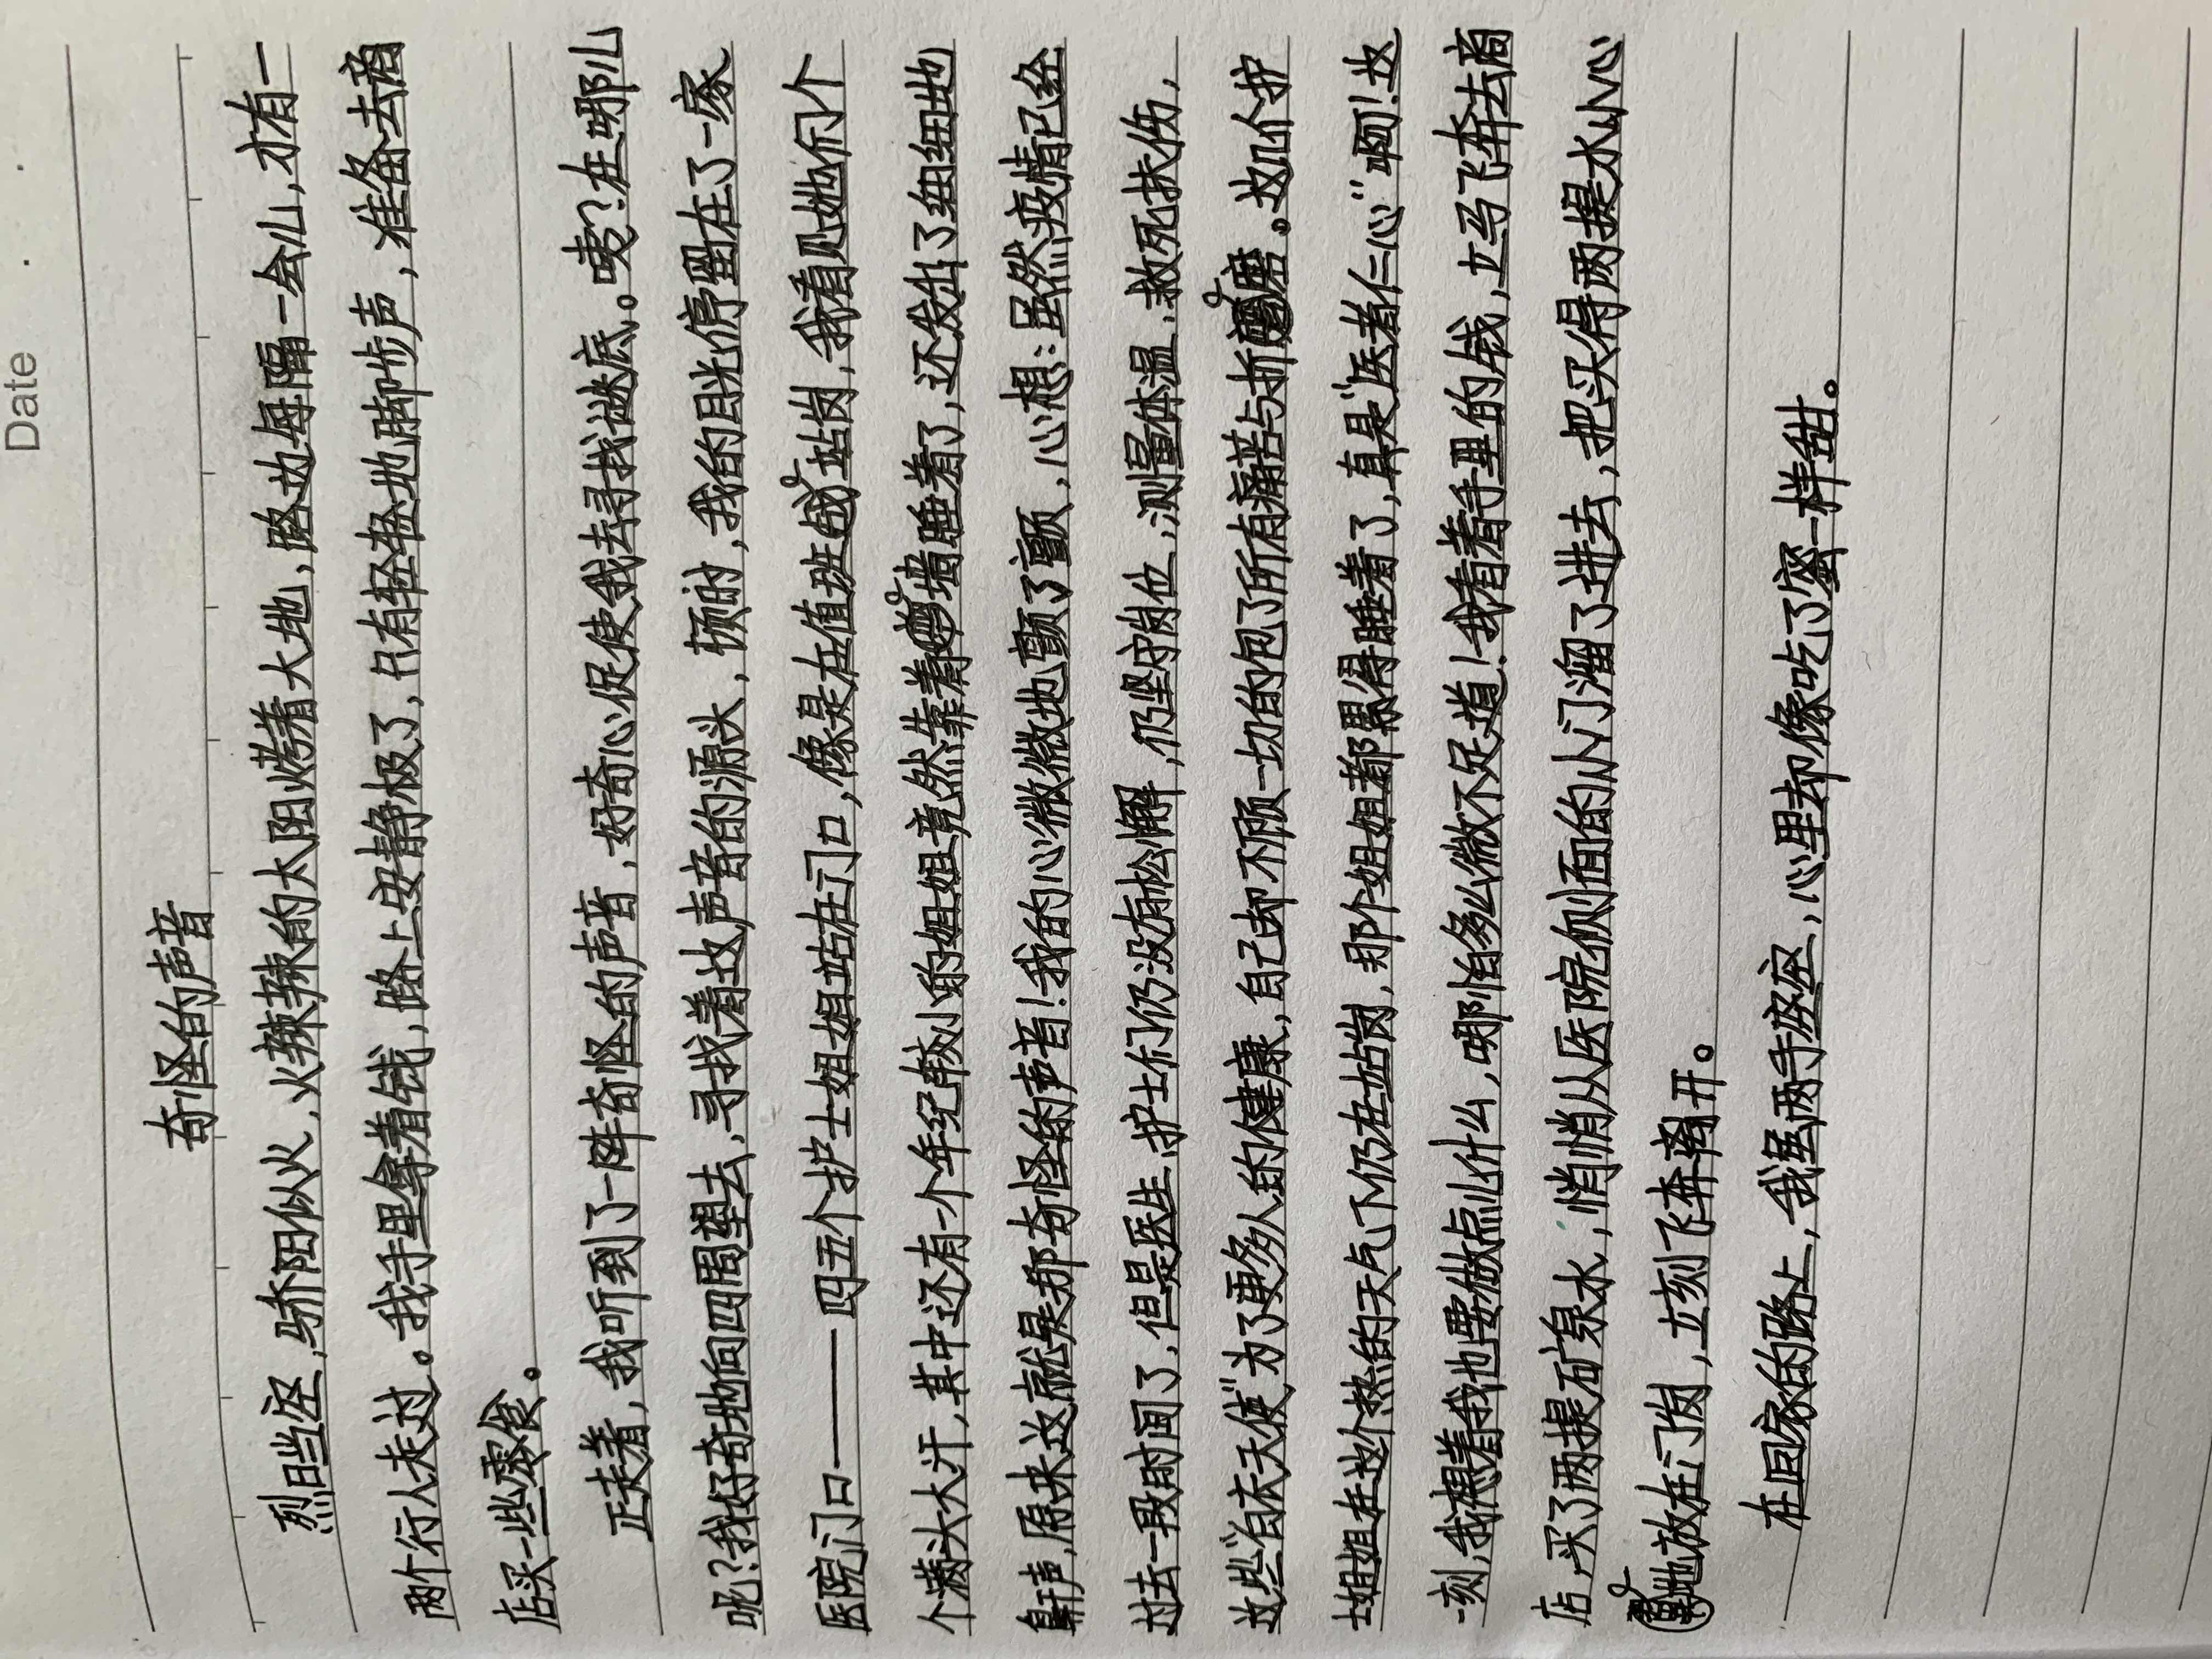 Date
奇怪的声音
烈日当空,骄阳似火,火辣辣的太阳烤着大地,路边每隔一会儿,才有一
两个行人走过。我手里拿着钱,路上安静极了,只有轻轻地脚步声,准备去商
店买一些零食。
正走着,我听到了一阵奇怪的声音,好奇心促使我去寻找谜底。咦?在哪儿
呢?我好奇地向四周望去,寻找着这声音的源头,顿时,我的目光停留在了一家
医院门口——四五个护士姐姐站在门口,像是在值班站岗,我看见她们个
个满头大汗,其中还有一个年纪较小的姐姐竟然靠着墙睡着了,还发出了细细地
鼻声,原来这就是那奇怪的声音!我的心微微地颤了颤,心想:虽然疫情已经
过去一段时间了,但是医生、护士们仍没有松懈,仍坚守岗位,测量体温、救死扶伤,
这些“白衣天使”为了更多人的健康,自己却不顾一切的包了所有痛苦与折磨。这几个护
士姐姐在这个热的天气下仍在站岗,那个姐姐都累得睡着了,真是“医者仁心”啊!这
一刻,我想着我也要做点儿什么,哪怕多么微不足道!我看着手里的钱,立马飞奔去商
店,买了两提矿泉水,悄悄从医院侧面的小门溜了进去,把买得两提水小心
地放在门岗,立刻飞奔离开。
在回家的路上,我虽两手空空,心里却像吃了蜜一样甜。